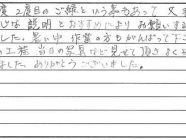 度工度目のご縁という事もあって又
じな説明とおすすめによりお願いする
した。暑い中作業の方もがんばって下
の工程、当日の写真など見せて頂きよく
ました。ありがとうございました。